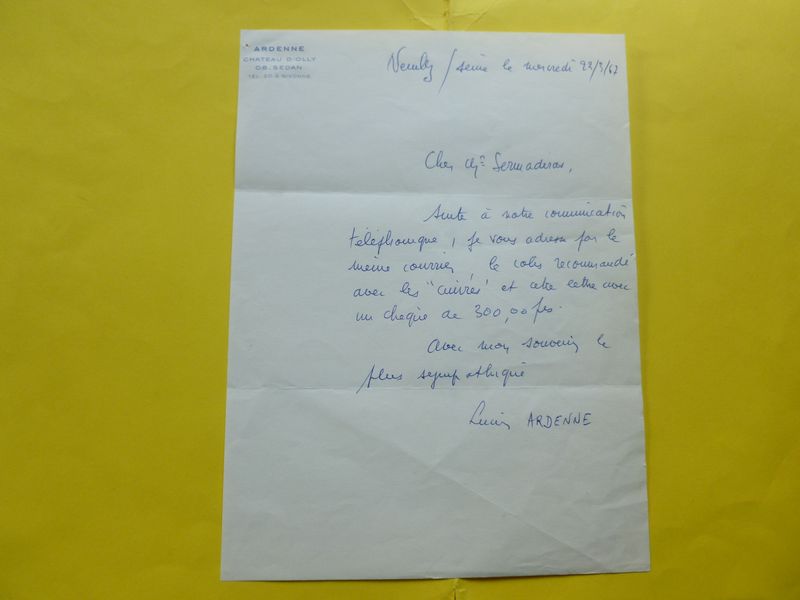 ARDENNE
CHATEAU D'OLLY
08. SEDAN
TEL. 20 À GIVONNE
Neuilly / seine le mercredi 22/3/67
Cher Mr Sermadiras,
Suite à notre communication
téléphonique, je vous adresse par le
même courrier, le colis recommandé
avec les "cuivres" et cette lettre avec
un chèque de 300,00 frs.
Avec mon souvenir le
plus sympathique
Lucien ARDENNE